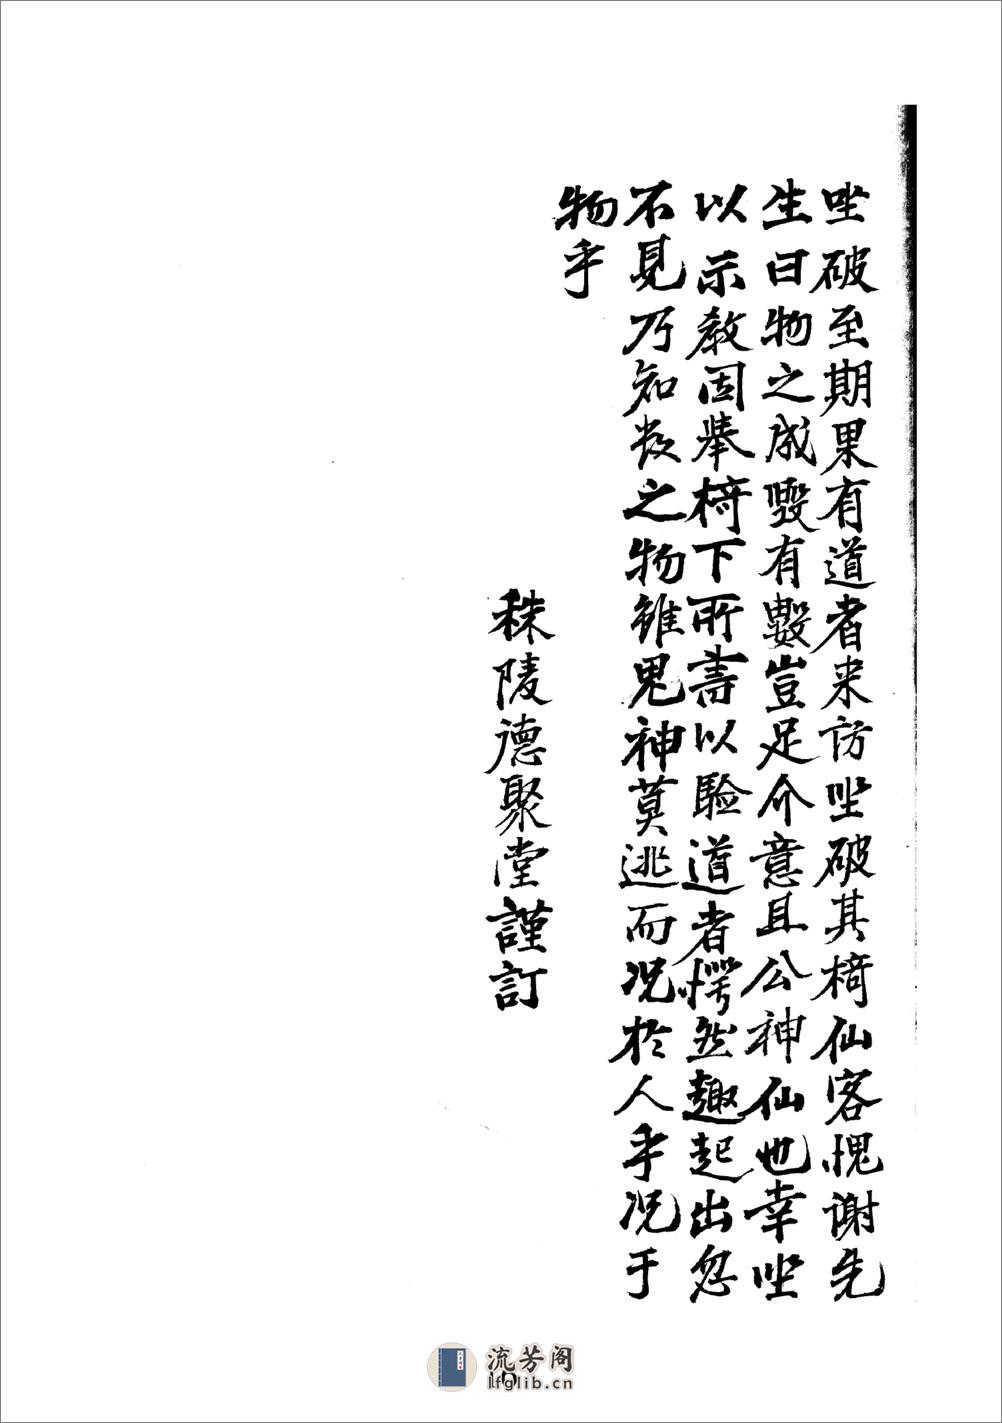 坐破至期果有道者来访坐破其椅仙客愧謝先
生曰物之成毁有數豈足介意且公神仙也幸坐
以示教因舉椅下所書以驗道者愕然趣起出忽
不見乃知数之物雖鬼神莫逃而况於人乎况于
物乎
秣陵德聚堂謹訂
流芳阁
lfglib.cn